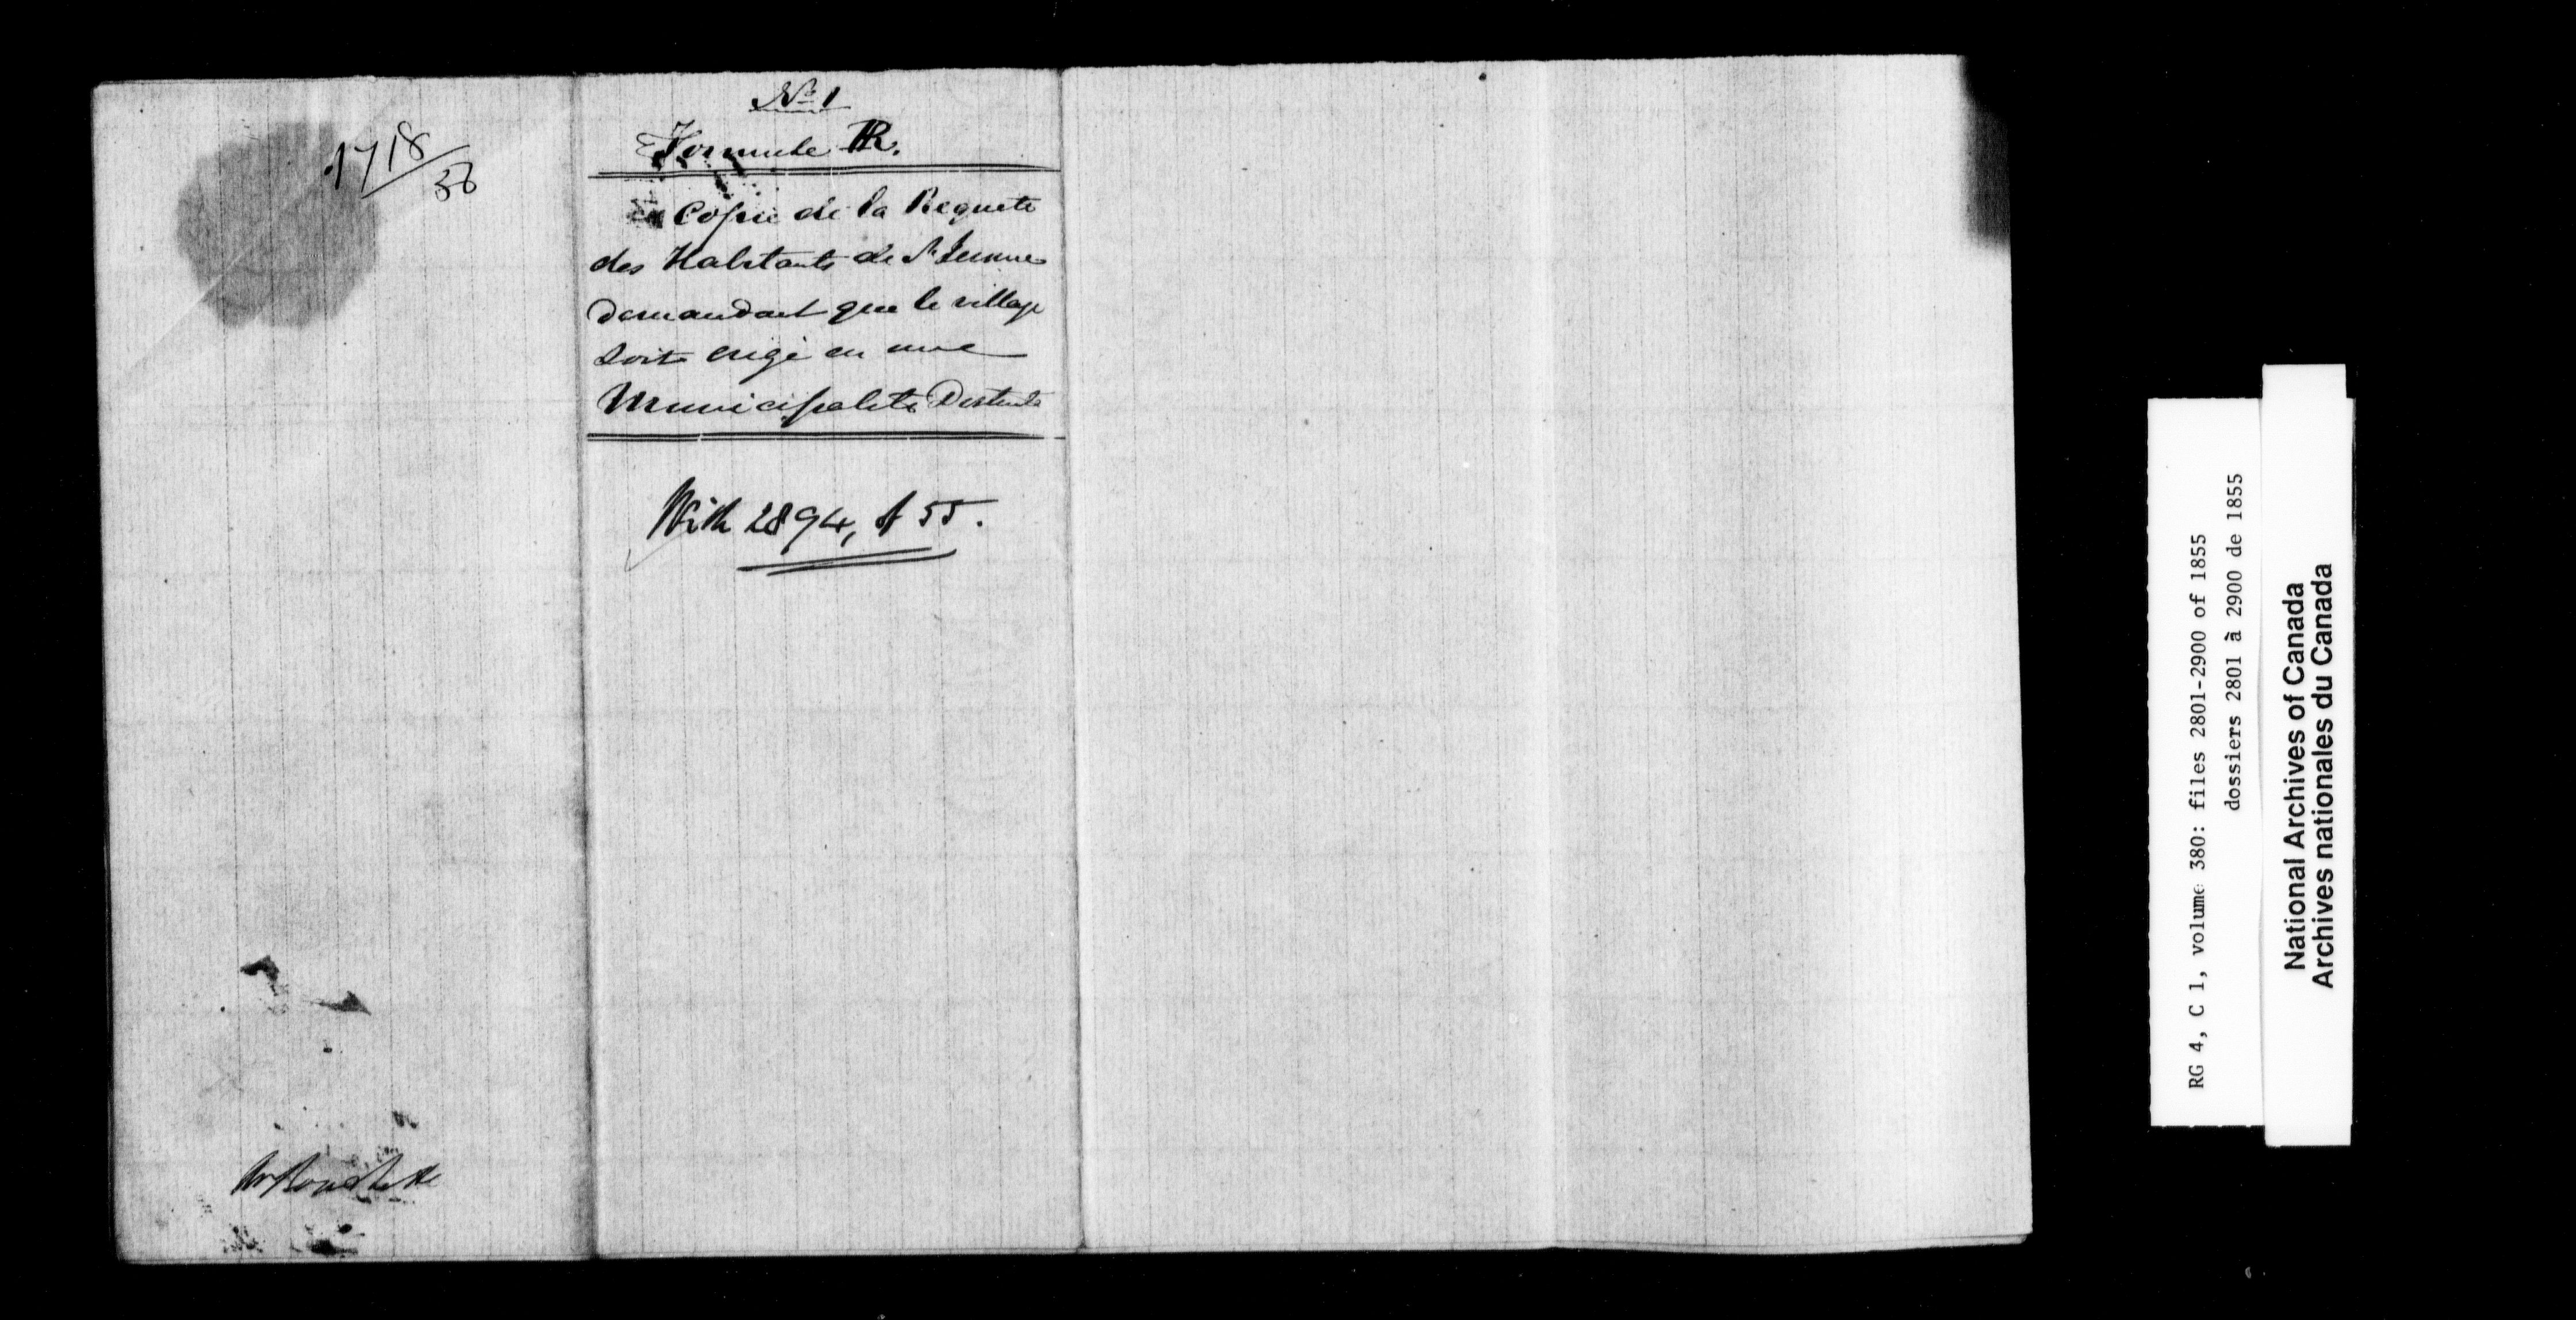 1718/56
No 1
Formule R.
Copie de la Requete
des Habitants de St Jerome
demandant que le village
Soit erigé en une
Municipalité Distincte
With 2894, of 55.
RG 4, C 1, volume 380: files 2801-2900 of 1855
dossiers 2801 à 2900 de 1855
National Archives of Canada
Archives nationales du Canada